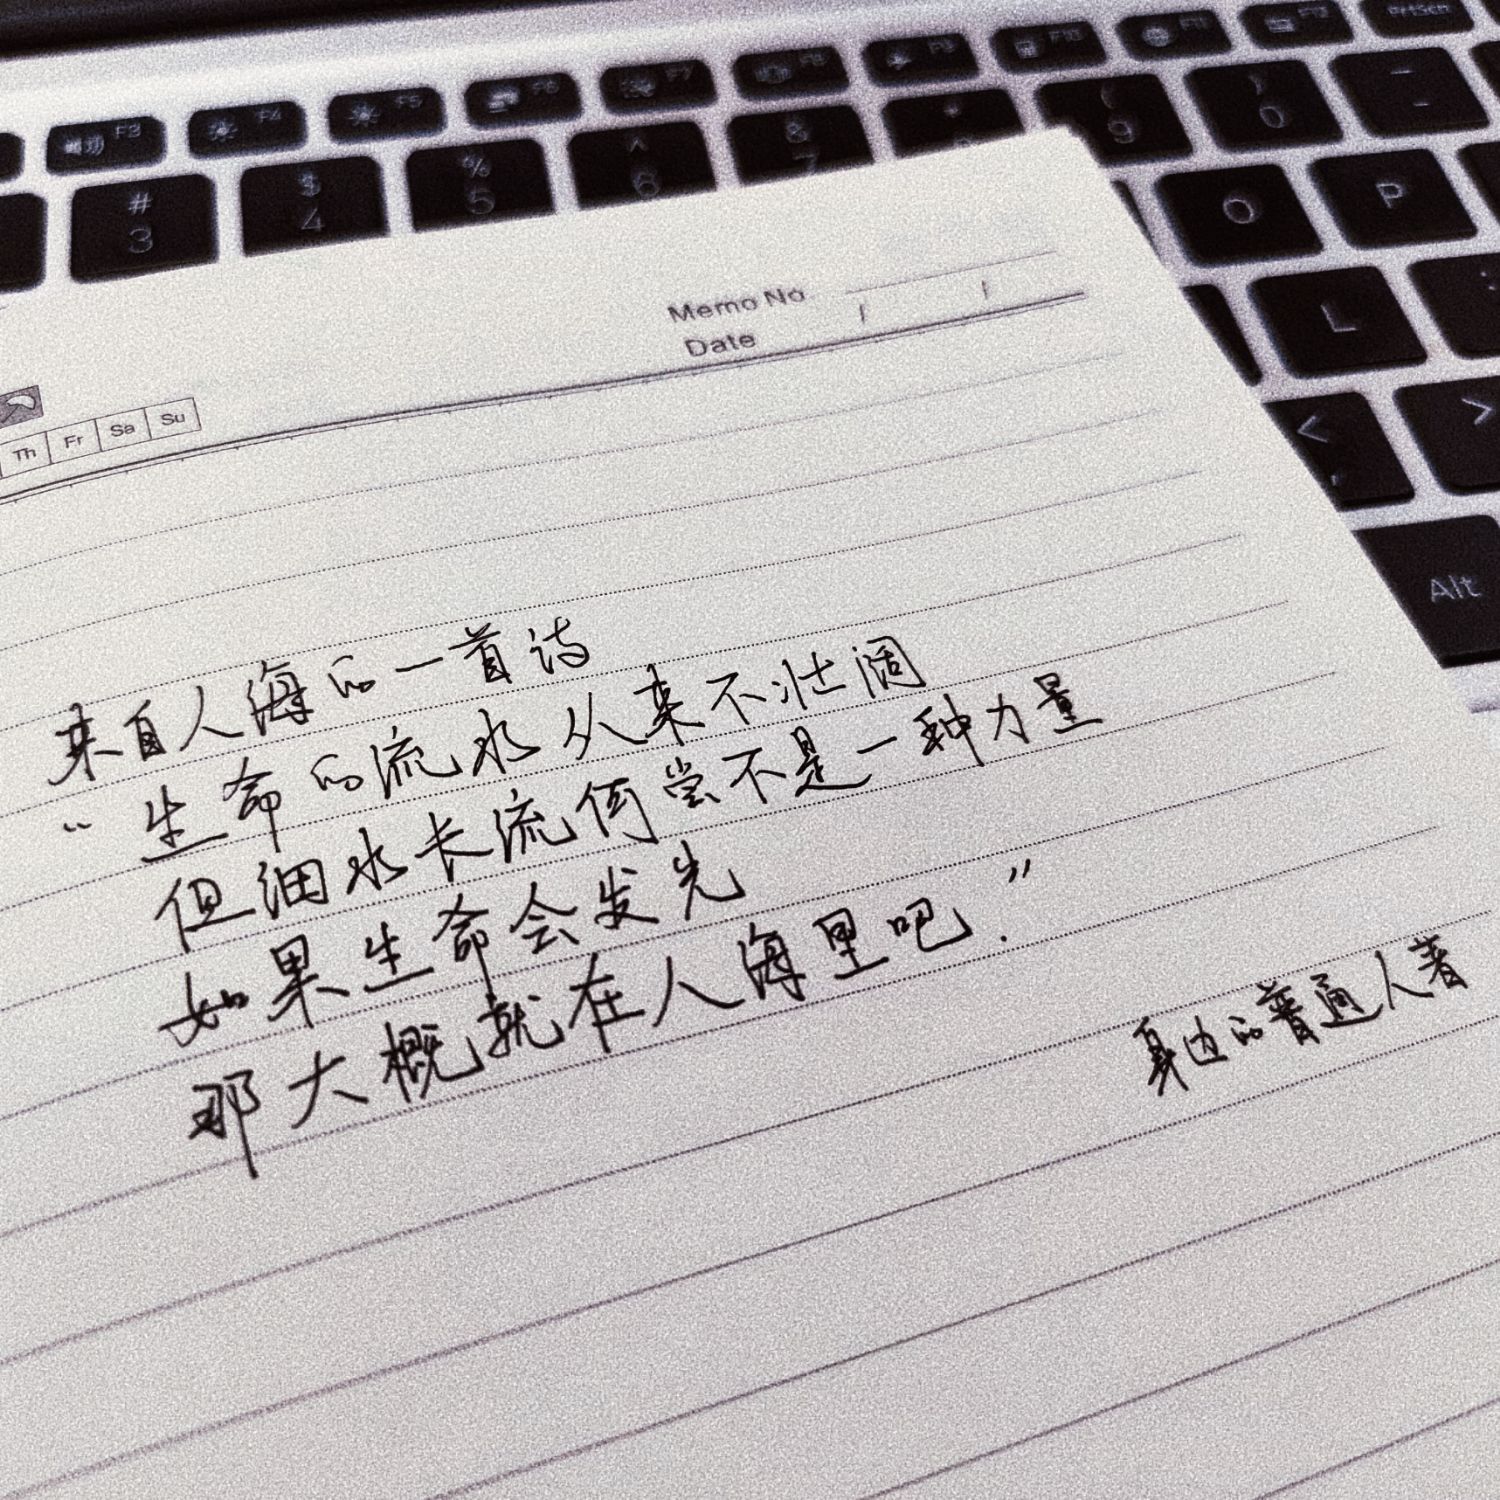 F3 F4 F5 F6 F7 F8 F9 F10 F11 F12 PrtScn
# 3 $ 4 % 5 ^ 6 & 7 * ( 9 ) 0 -
O P
L
<
>
Alt
Memo No.
Date / /
Th Fr Sa Su
来自人海的一首诗
“生命的流水从来不壮阔
但细水长流何尝不是一种力量
如果生命会发光
那大概就在人海里吧.”
身边的普通人著